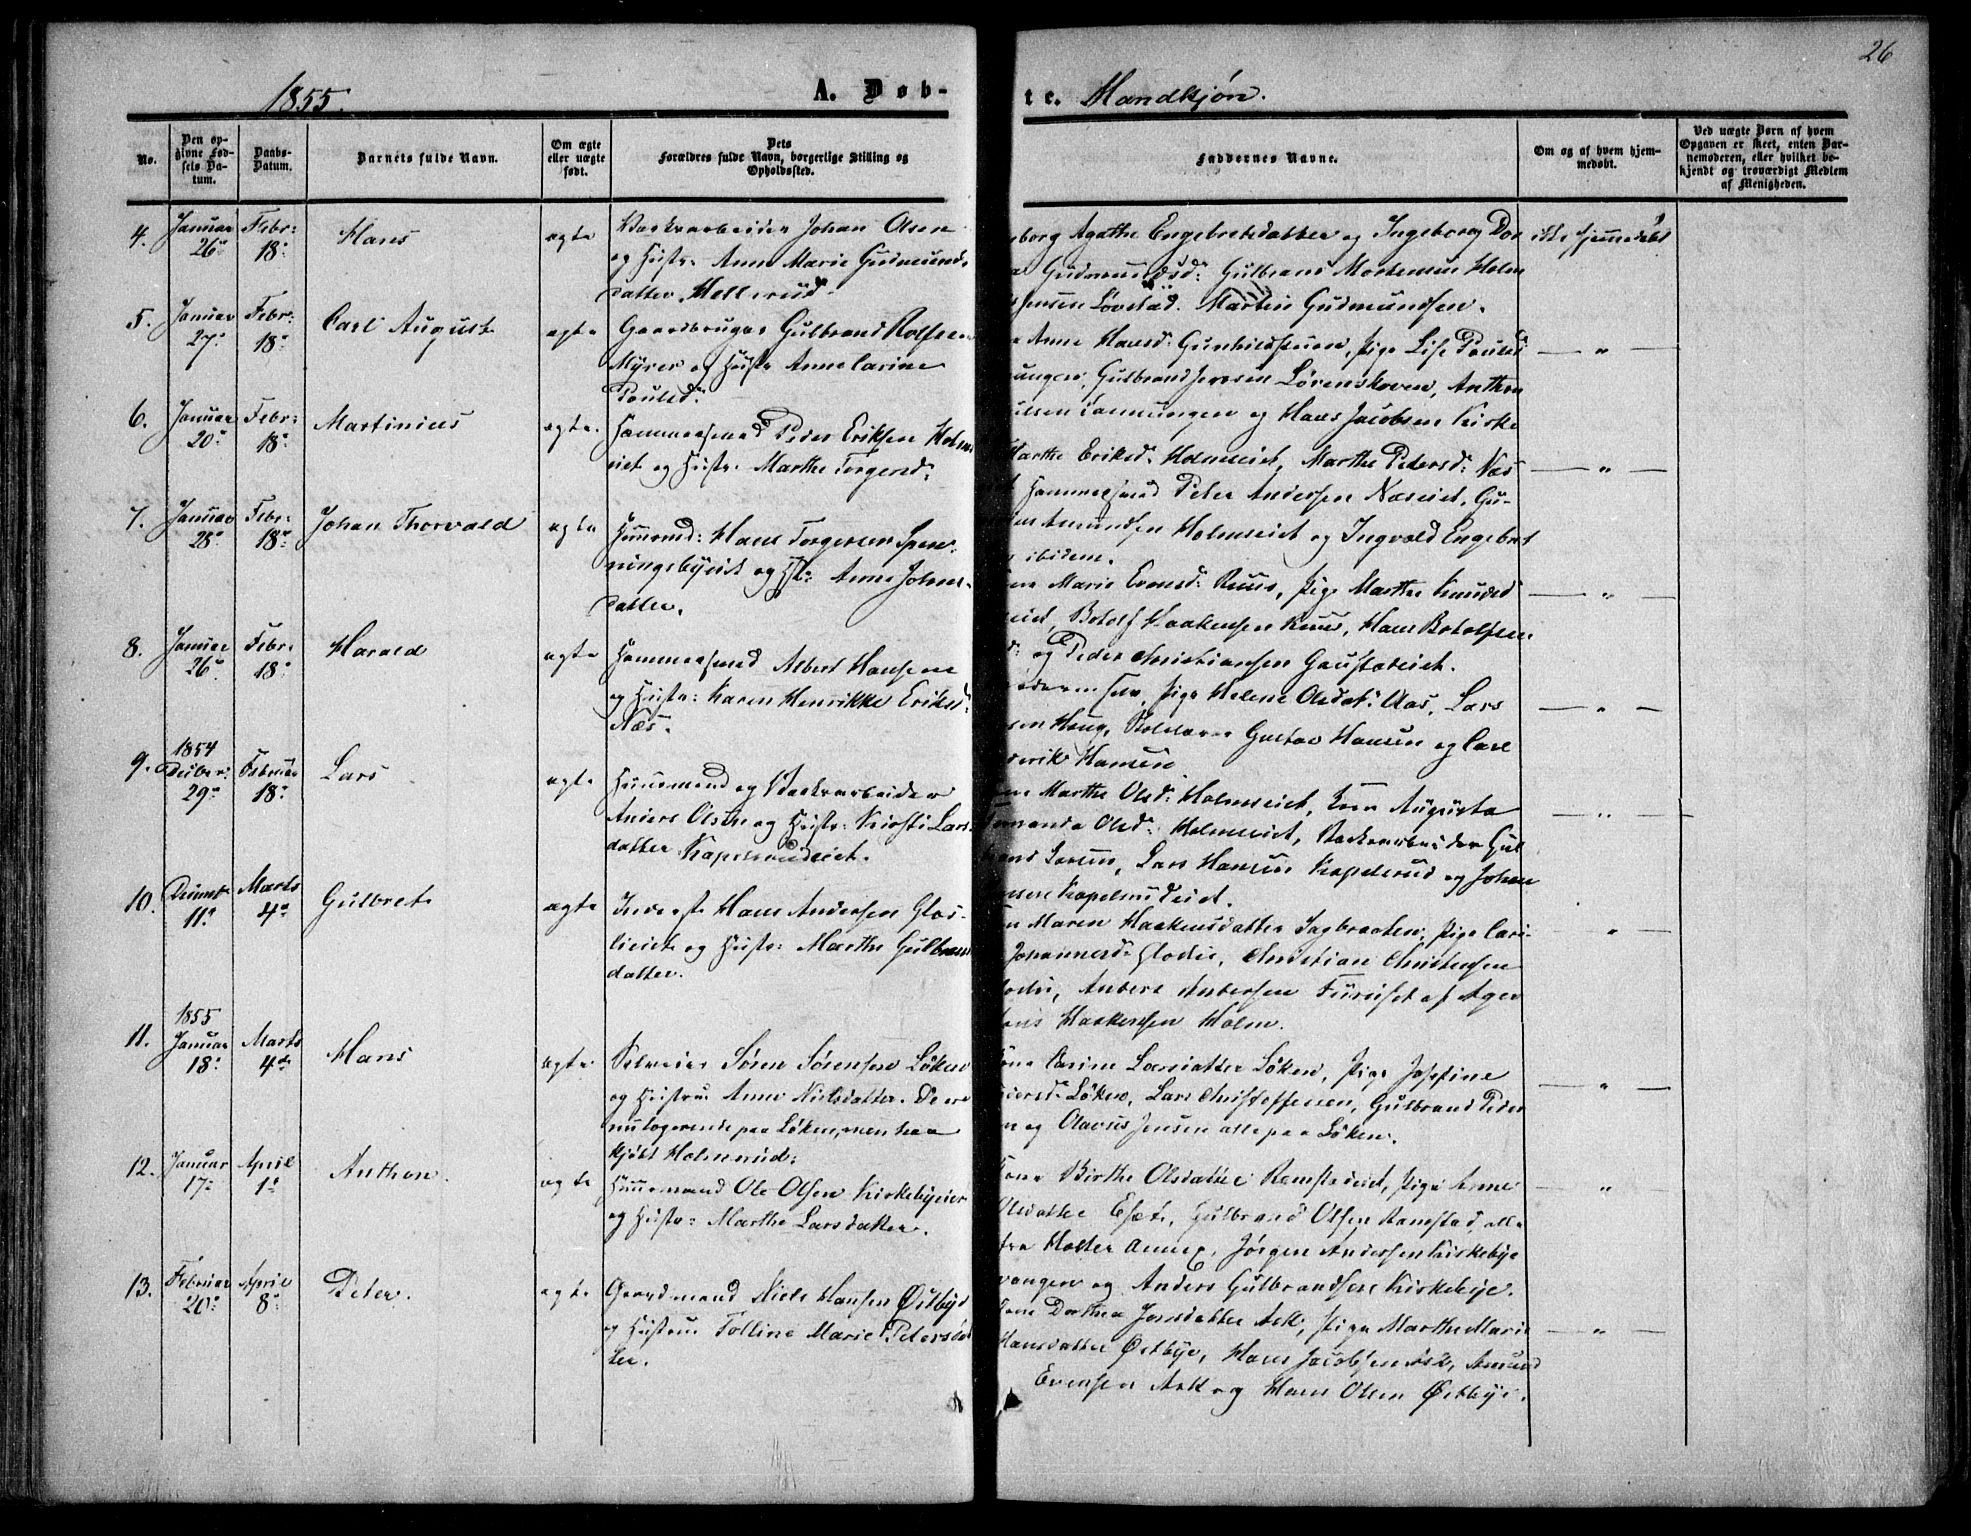 26
1855.
A. Døb-
te. Mandkjøn.
No.
Den op-
givne Fød-
sels Da-
tum.
Daabs-
Datum.
Barnets fulde Navn.
Om ægte
eller uægte
født.
Dets
Forældres fulde Navn, borgerlige Stilling og
Opholdssted.
Faddernes Navne.
Om og af hvem hjem-
medøbt.
Ved uægte Børn af hvem
Opgaven er skeet, enten Bar-
nemoderen, eller hvilket be-
kjendt og troværdigt Medlem
af Menigheden.
4.
Januar
26de
Febr:
18:
Hans
ægte
Værksarbeider Johan Olsen
og Hustr: Anne Marie Gudmunds
datter Hellerud.
borg Agathe Engebretsdatter og Ingeborg Dor
Gudmundsd: Gulbrand Mortensen Holm
Jensen Løvstad. Martin Gudmundsen.
ikke hjemmedøbt
5.
Januar
27de
Febr:
18:
Carl August
ægte
Gaardbruger Gulbrand Rolfsen
Myrer og Hustr Anne Carine
Poulsd:
Anne Hansd: Gunhildstuen, Pige Lise Poulsd
ungen, Gulbrand Jensen Lørenskoven, Anthon
ulsen og Hans Jacobsen Kirke
— " —
6.
Januar
20de
Febr:
18:
Martinius
ægte.
Hammersmed Peder Eriksen Holms
eiet og Hustr. Marthe Torgersd:
Marthe Eriksd: Holmseiet, Marthe Pedersd: Næs
Hammersmed Peter Andersen Næseiet, Gu-
Amundsen Holmseiet og Ingvald Engebret
ibidem.
— " —
7.
Januar
28de
Febr:
18de
Johan Thorvald
ægte
Huusmd: Hans Torgersen Spen-
ningsbyeiet og Hst: Anne Johns-
datter.
Marie Evensd: Ruus, Pige Marthe Knudsd
eiet, Botolf Haakensen Ruus, Hans Botolfsen
og Peder Christiansen Gaustadeiet.
— " —
8.
Januar
26de
Febr:
18:
Harald
ægte
Hammersmed Albert Hansen
og Hustr: Karen Henrikke Eriksd:
Næs.
Moderen selv, Pige Helene Olsdat: Aas, Lars
sen Haug, Gustav Hansen og Carl
derik Hansen
— " —
9.
1854
Decber:
29de
Februar
18:
Lars
ægte
Huusmand og Værksarbeider
Anders Olsen og Hustr: Kirsti Lars-
datter Kapelsrudeiet.
Marthe Olsd: Holmseiet, Augusta
Fernanda Olsd: Holmseiet, Værksarbeider Gul
brand Larsen, Lars Hansen Kapelsrud og Johan
Kapelsrudeiet.
— " —
10.
Decemb
11te
Marts
4de
Gulbret
ægte
Inderst Hans Andersen Glos-
lieiet og Hustr: Marthe Gulbrands
datter.
Maren Haakensdatter Sagbraaten, Pige Cari-
Johannesd: Glosli, Christian Christensen
Glosli, Anders Andersen Furuset af Ager
Haakensen Holm.
"
11.
1855
Januar
18:
Marts
4de
Hans
ægte
Selveier Søren Sørensen Løken
og Hustru Anne Nielsdatter. De ere
nu logerende paa Løken, men har
kjøbt Holmsrud.
Kone Karine Larsdatter Løken, Pige Josefine
Løken, Lars Christoffersen, Gulbrand Peder
og Olavus Jensen alle paa Løken.
— " —
12.
Januar
17de
April
1ste
Anthon.
ægte
Huusmand Ole Olsen Kirkebyeier
og Hustr: Marthe Larsdatter.
Kone Birthe Olsdatter Ramstadeiet, Pige Anne
Olsdatter , Gulbrand Olsen Ramstad, alle
fra Holter Annex, Jørgen Andersen Kirkebye
vangen og Anders Gulbrandsen Kirkebye.
— " —
13.
Februar
20de
April
8:
Peter.
ægte
Gaardmand Niels Hansen Østbye
og Hustru Tolline Marie Petersdat
ter.
Kone Dorthea Jonsdatter Ask, Pige Marthe Marie
Hansdatter Østbye, Hans Jacobsen Ask, Amund
Evensen Ask og Hans Olsen Østbye.
— " —